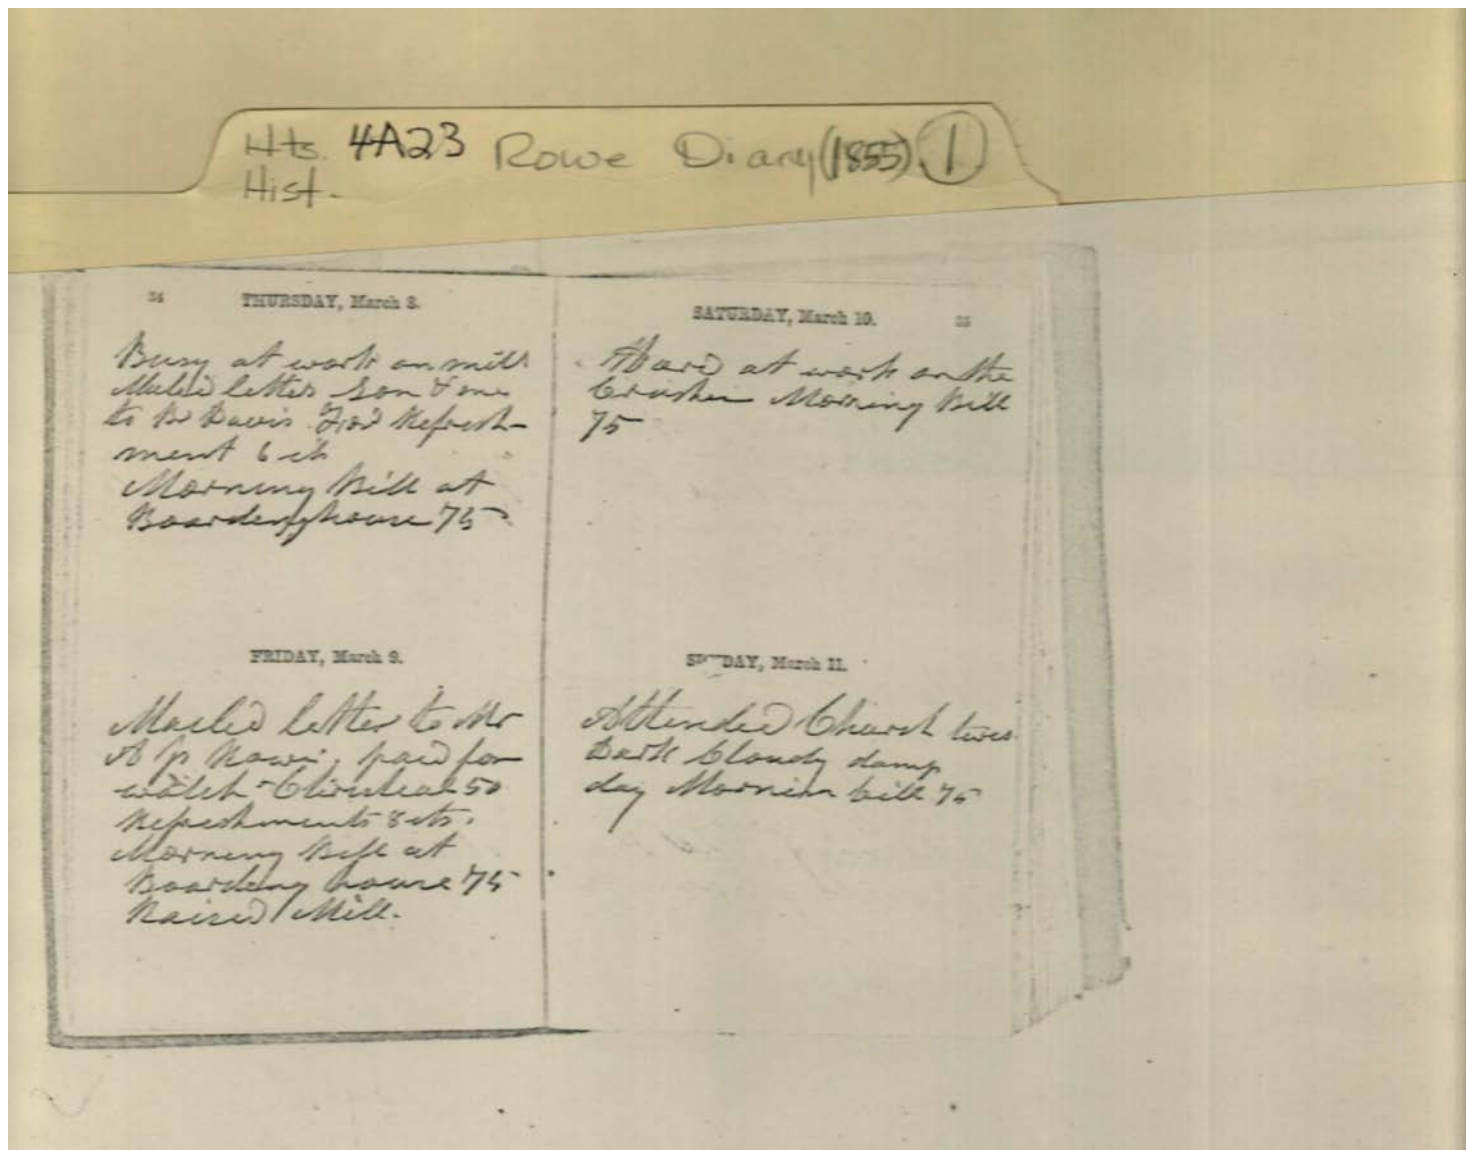 Hts. 4A23 Rowe Diary (1855) 1
Hist.
34 THURSDAY, March 8.
Busy at work on mill
Mailed letter son & one
to Br Davis Refresh-
ment 6 ct
Morning Bill at
Boardinghouse 75
FRIDAY, March 9.
Mailed letter to Mr
A P paid for
watch 50
Refreshments 8 cts.
Morning Bill at
Boarding house 75
Raised Mill.
SATURDAY, March 10. 35
Hard at work on the
Crusher Morning Bill
75
SUNDAY, March 11.
Attended Church twice
Dark Cloudy damp
day Mornin bill 75